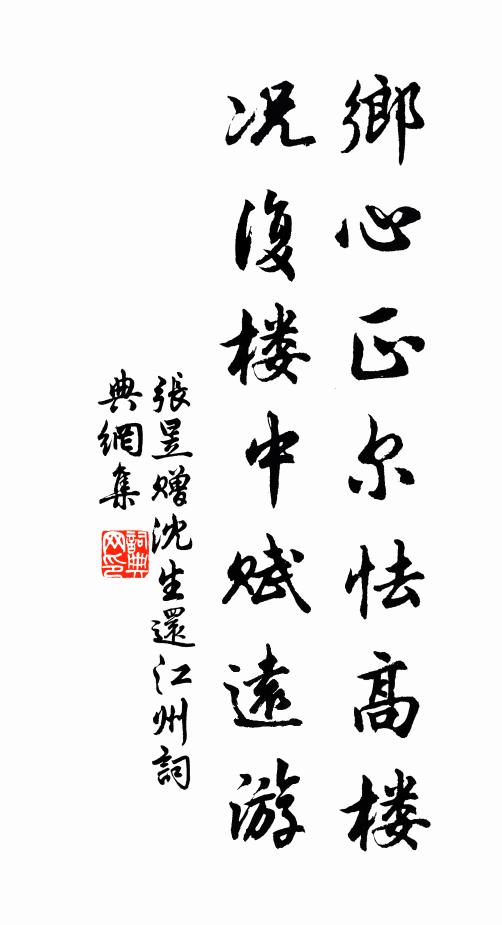 鄉心正尔怯高楼
况復楼中賦遠游
張昱赠沈生還江州詞
典網集
詞典网印